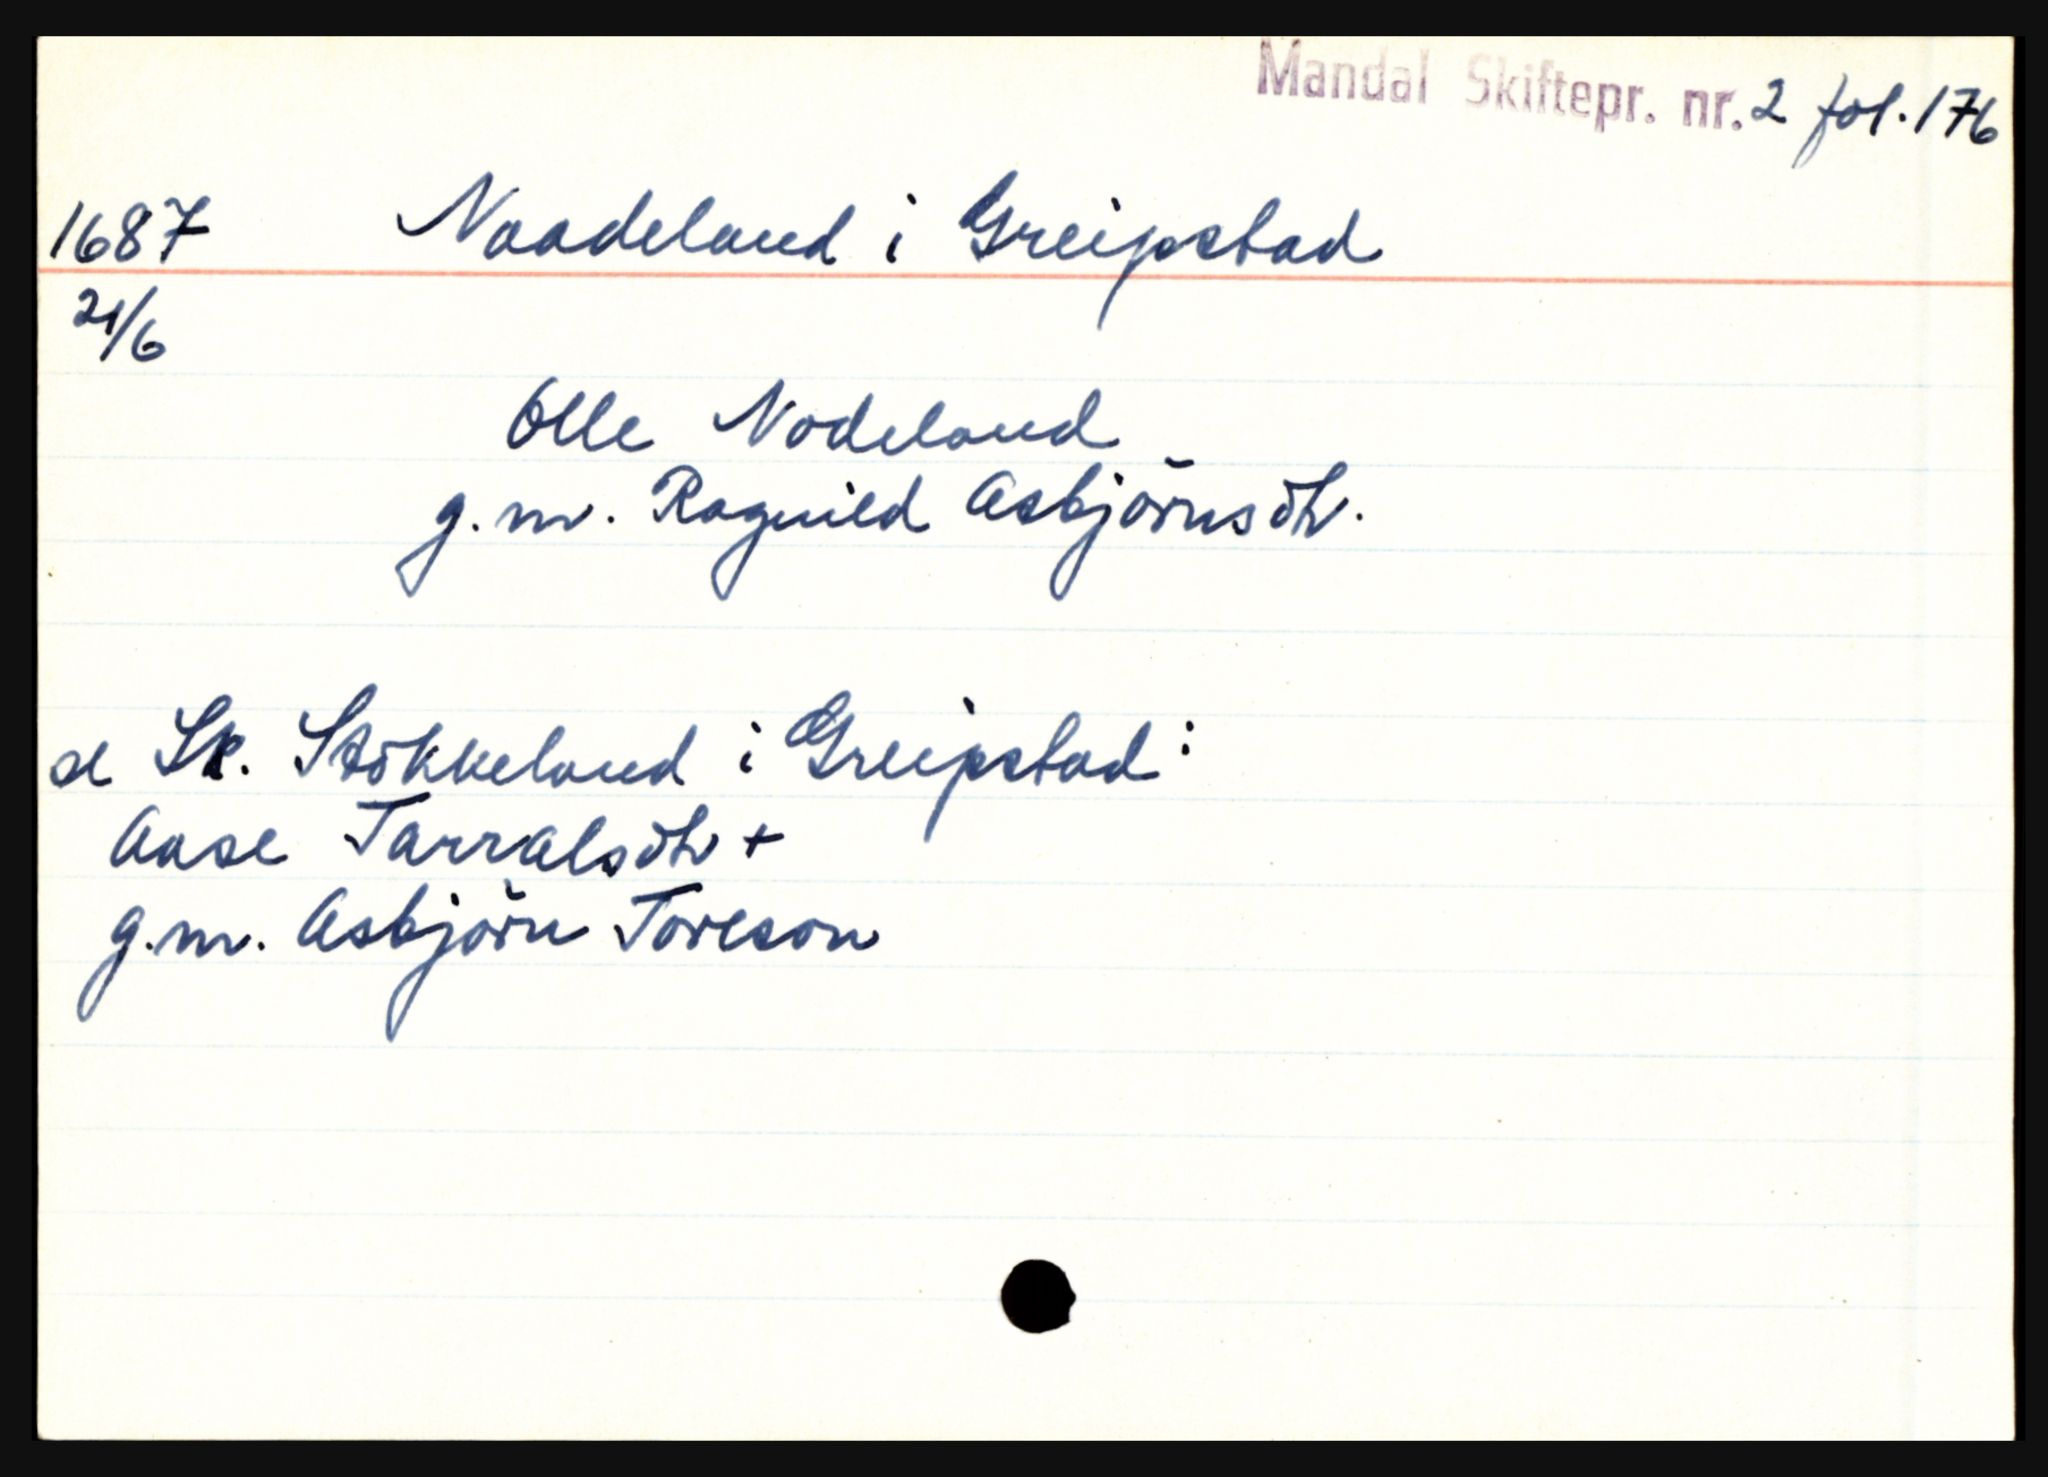 Mandal Skiftepr. nr. 2 fol. 176
1687 Naadeland i Greipstad
21/6
Olle Nodeland
g.m. Raguild Asbjörnsdtr.
se Sk. Stökkeland i Greipstad:
Aase Tarralsdtr +
g.m. Asbjörn Toreson